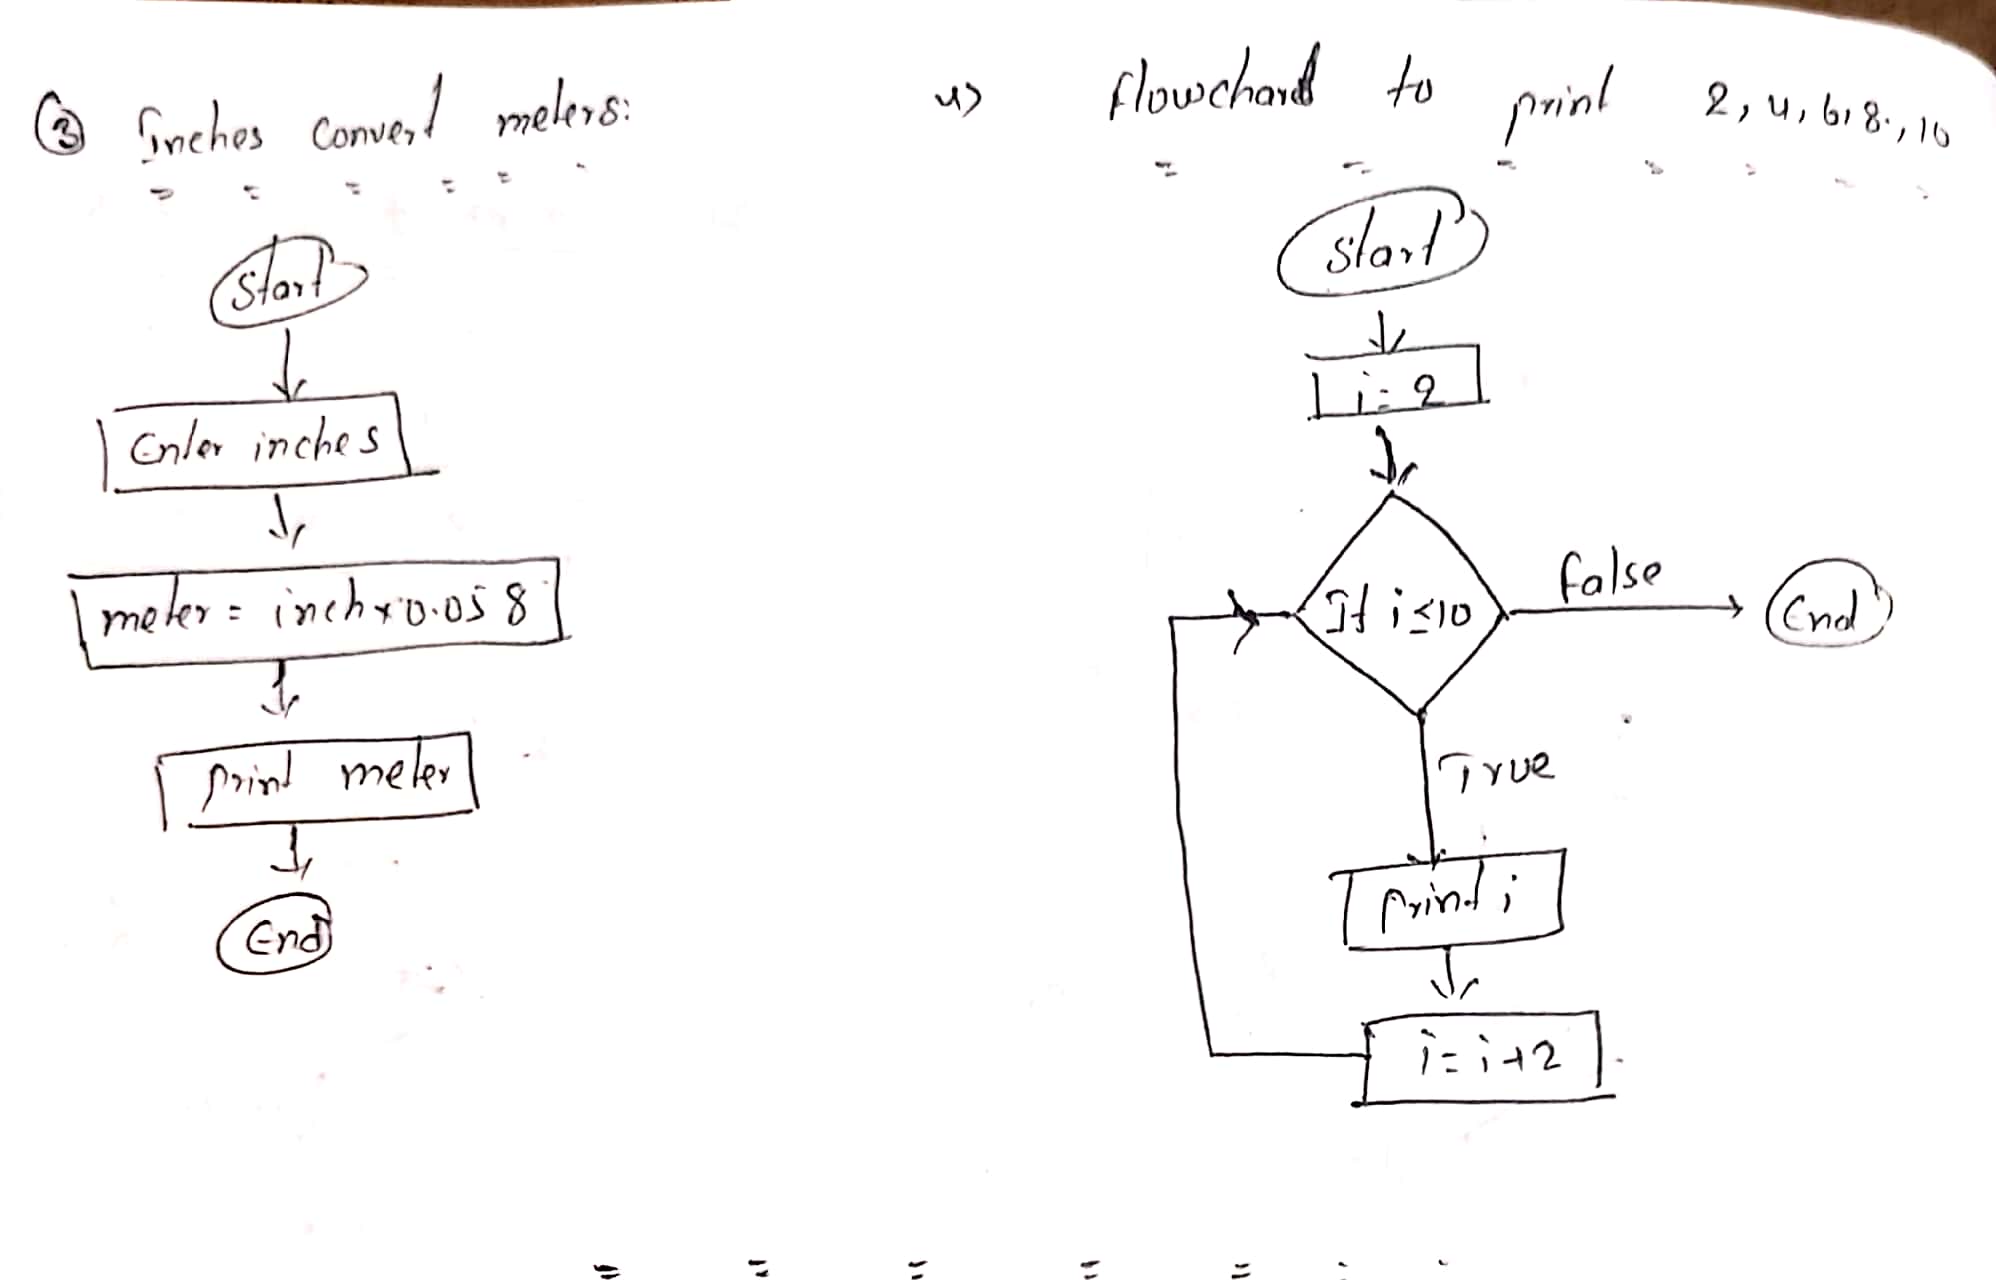 ③ Inches Convert meters:
Start
Enter inches
meter = inch x 0.058
print meter
End
4) flowchart to print 2, 4, 6, 8, 10
Start
i = 2
If i ≤ 10
false
End
True
print i
i = i + 2